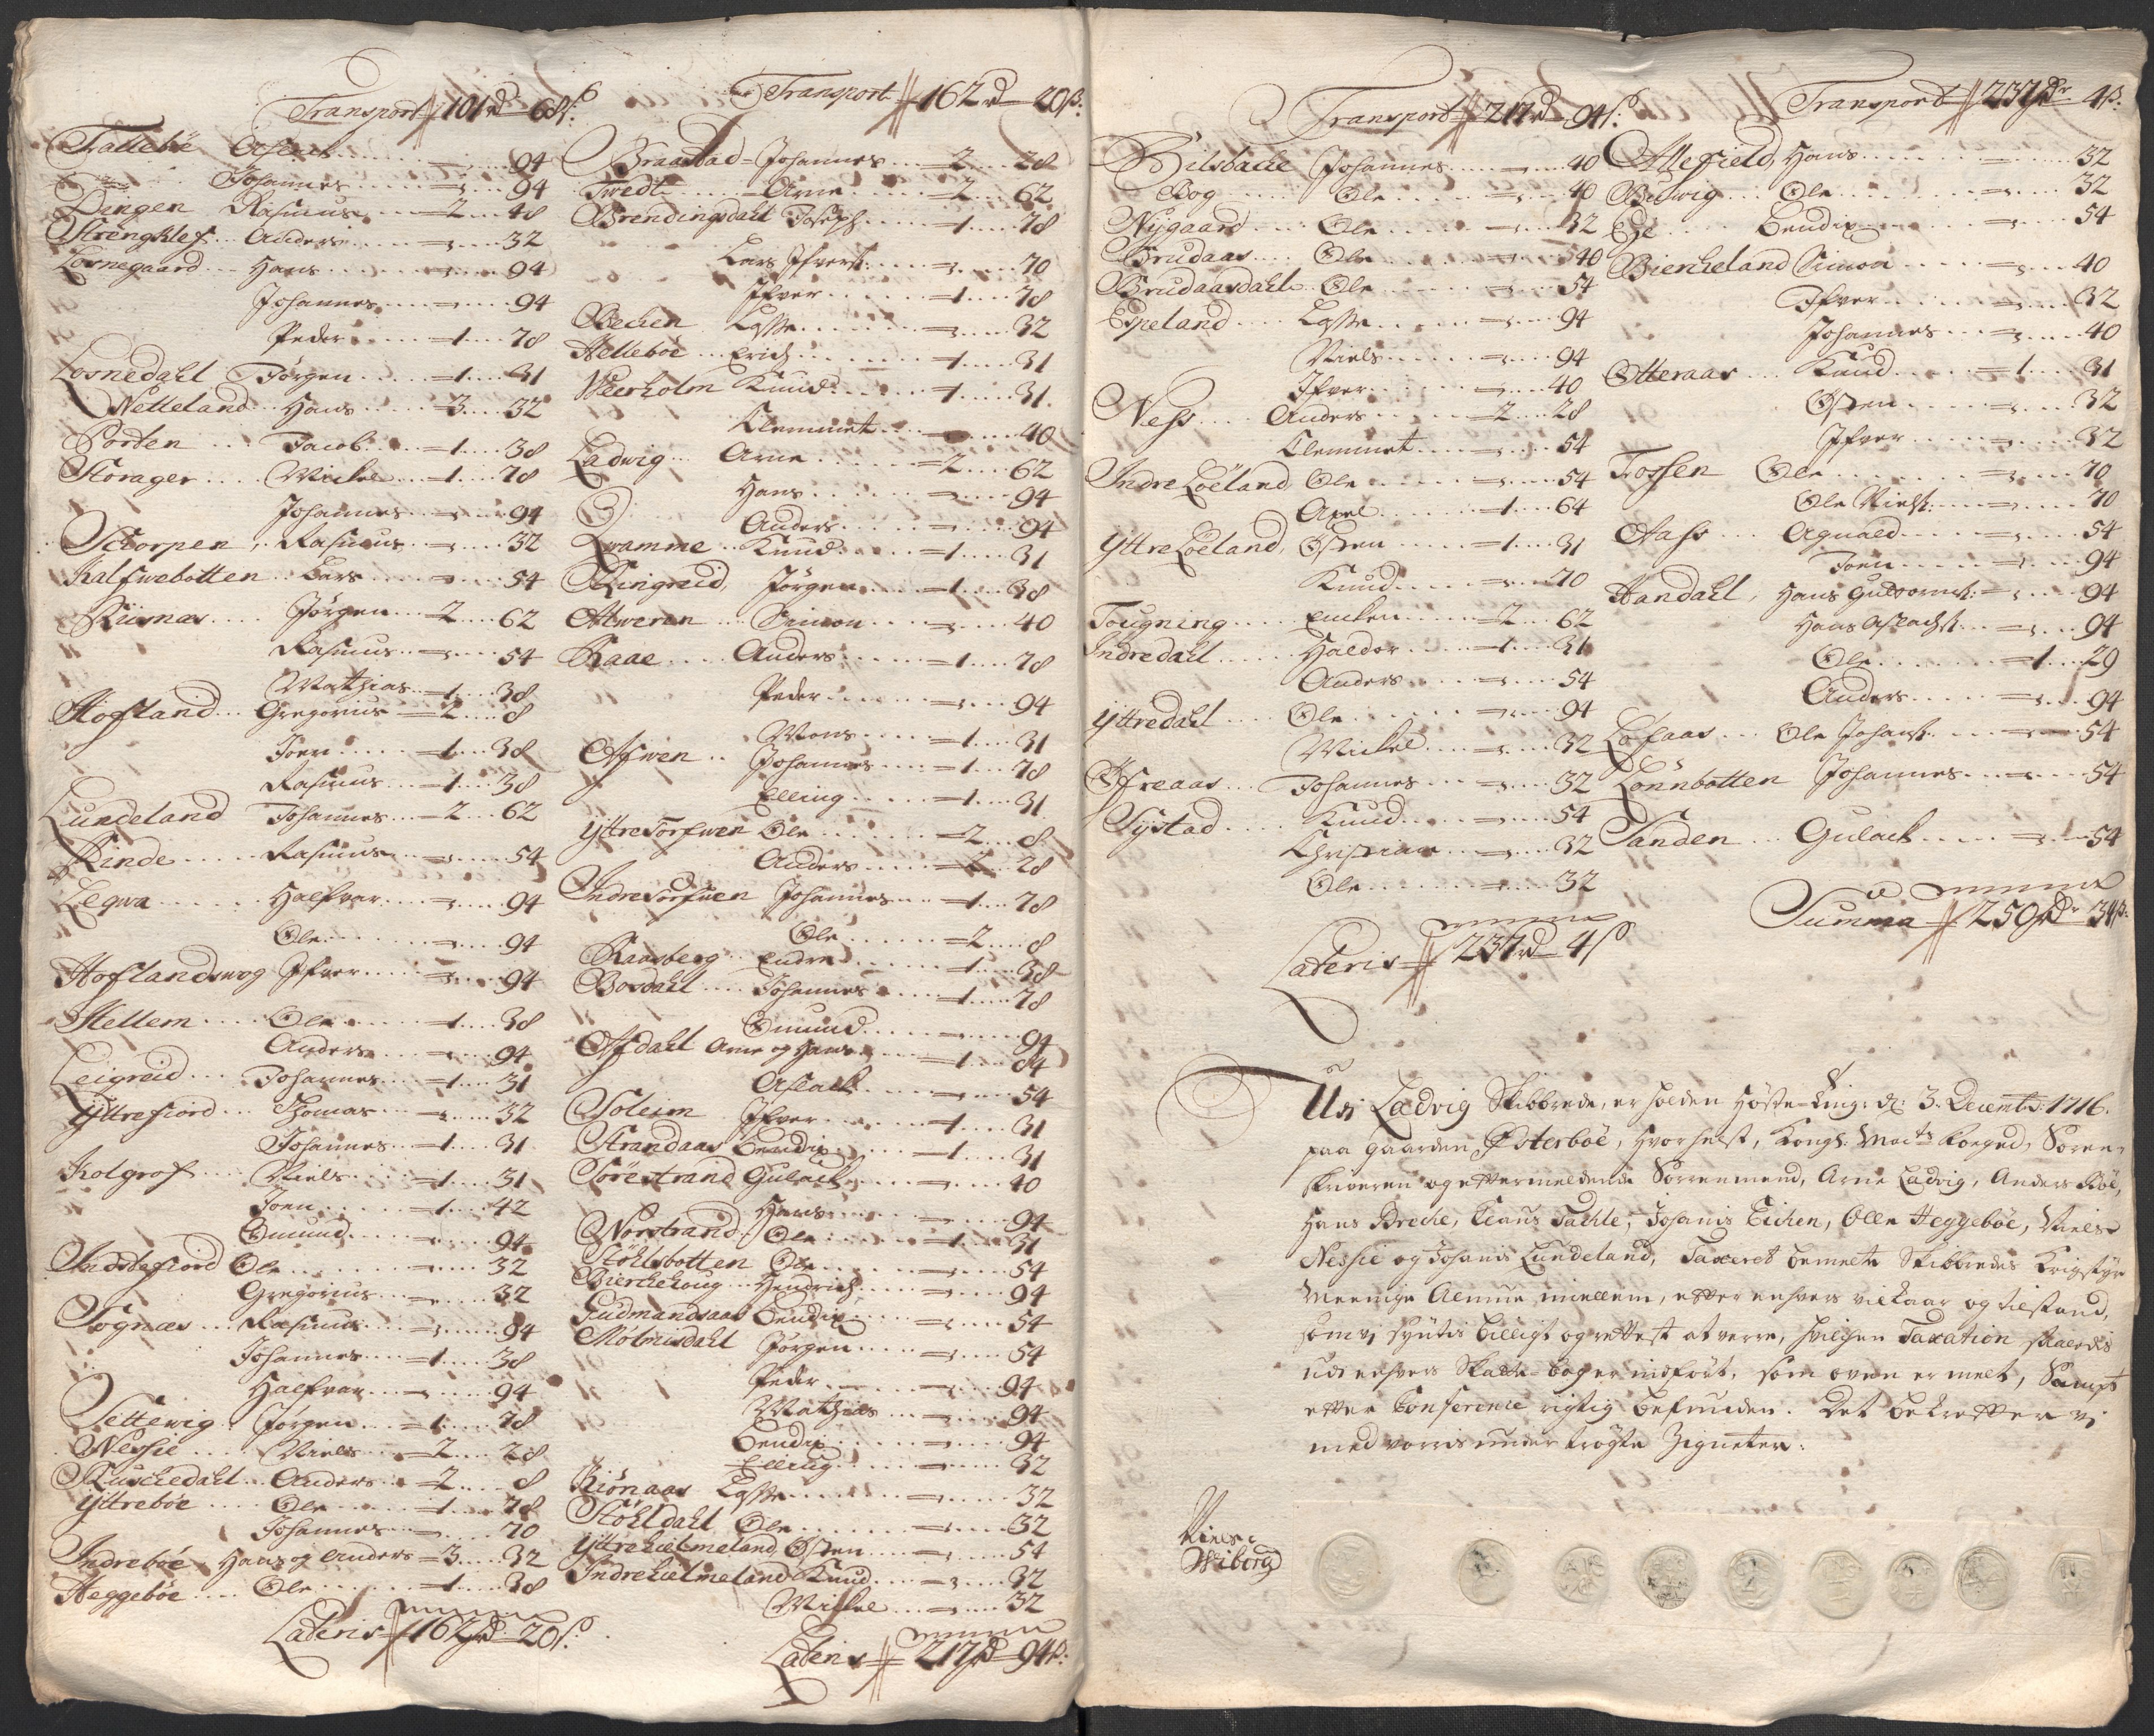 Transport 101 rd 68 ß:
Tallebøe ..... 94
Johannes ..... 94
Dingen Rasmus ..... 2 .... 48
Strengklef Anders ..... 32
Lovnegaard Hans ..... 94
Johannes ..... 94
Peder ..... 1 .... 78
Lovnedahl Jørgen ..... 1 .... 31
Netteland Hans ..... 3 .... 32
Porten Jacob ..... 1 .... 38
Storager Mickel ..... 1 .... 78
Johannes ..... 94
Schorpen Rasmus ..... 32
Kalfwebotten Lars ..... 54
Risnæs Jørgen ..... 2 .... 62
Rasmus ..... 54
Mathias ..... 1 .... 38
Hofland Gregorius ..... 2 .... 8
Joen ..... 1 .... 38
Rasmus ..... 1 .... 38
Lundeland Johannes ..... 2 .... 62
Rinde Rasmus ..... 54
Leqwa Halfvar ..... 94
Ole ..... 94
Hoflandswog Ifver ..... 94
Hellem Ole ..... 1 .... 38
Anders ..... 94
Leigreid Johannes ..... 1 .... 31
Yttrefiord Thomas ..... 32
Johannes ..... 1 .... 31
Kolgrof Niels ..... 1 .... 31
Joen ..... 1 .... 42
Omund ..... 94
Indrefiord Ole ..... 32
Gregorius ..... 32
Sognæs Rasmus ..... 94
Johannes ..... 1 .... 38
Halfvar ..... 94
Settewig Jørgen ..... 1 .... 78
Nessie Niels ..... 2 .... 28
Kuschedahl Anders ..... 2 .... 8
Yttrebøe Ole ..... 1 .... 78
Johannes ..... 70
Indrebøe Hans og Anders ..... 3 .... 32
Heggebøe Ole ..... 1 .... 38
Lateris 162 rd 20 ß:
Transport 162 rd 20 ß:
Braastad Johannes ..... 2 .... 28
Twedt Arne ..... 2 .... 62
Brendingsdahl Joseph ..... 1 .... 78
Lars Ifvers: ..... 70
Ifver ..... 1 .... 78
Bechen Lasse ..... 32
Hellebøe Erich ..... 1 .... 31
Weerholm Knud ..... 1 .... 31
Clemmet ..... 40
Ladwig Arne ..... 2 .... 62
Hans ..... 94
Anders ..... 94
Qvamme Knud ..... 1 .... 31
Ringreid Jørgen ..... 1 .... 38
Atweren Simon ..... 40
Raae Anders ..... 1 .... 78
Peder ..... 94
Mons ..... 1 .... 31
Afwen Johannes ..... 1 .... 78
Elling ..... 1 .... 31
Yttretorfwen Ole ..... 2 .... 8
Anders ..... 2 .... 28
Indretorfuen Johannes ..... 1 .... 78
Ole ..... 2 .... 8
Raasberg Endre ..... 1 .... 38
Bordahl Johannes ..... 1 .... 78
Omund ..... 94
Afdahl Arne og Hans ..... 1 .... 84
Aslack ..... 54
Soleim Ifver ..... 1 .... 31
Strandaas Bendix ..... 1 .... 31
Sørestrand Gulack ..... 40
Hans ..... 94
Norstrand Ole ..... 1 .... 31
Støhlsbotten Ole ..... 54
Bierckehoug Hendrich ..... 94
Gudmandsaas Bendix ..... 54
Mølmisdahl Jørgen ..... 54
Peder ..... 94
Mathias ..... 94
Bendix ..... 94
Elling ..... 32
Kiønaas Lasse ..... 32
Støhldahl Ole ..... 32
Yttrehielmeland Østen ..... 54
Indrehielmeland Knud ..... 32
Mickel ..... 32
Lateris 217 rd 94 ß:
Transport 217 rd 94 ß:
Bilsbache Johannes ..... 40
Bog Ole ..... 40
Nygaard Ole ..... 32
Brudaas Ole ..... 40
Brudaasdahl Ole ..... 54
Espeland Lasse ..... 94
Niels ..... 94
Ifver ..... 40
Ness Anders ..... 2 .... 28
Clemmet ..... 54
Indre Løeland Ole ..... 54
Axel ..... 1 .... 64
Yttre Løeland Østen ..... 1 .... 31
Knud ..... 70
Tougning Encken ..... 2 .... 62
Indredahl Haldor ..... 1 .... 31
Anders ..... 54
Yttredahl Ole ..... 94
Mickel ..... 32
Øfreaas Johannes ..... 32
Systad Knud ..... 54
Christian ..... 32
Ole ..... 32
Lateris 237 rd 4 ß
Transport 237 rdr 4 ß:
Allefield Hans ..... 32
Budwig Ole ..... 32
Ee Bendix ..... 54
Bierckeland Simon ..... 40
Ifver ..... 32
Johannes ..... 40
Otteraas Knud ..... 1 .... 31
Østen ..... 32
Ifver ..... 32
Fossen Ole ..... 70
Ole Niels: ..... 70
Aass Agnald ..... 54
Joen ..... 94
Handahl Hans Guldorms: ..... 94
Hans Aslachs: ..... 94
Ole ..... 1 .... 29
Anders ..... 94
Løfaas Ole Johans: ..... 54
Lønnbotten Johannes ..... 54
Sanden Gulack ..... 54
Summa 250 rdr 34 ß:
Udj Ladvig Skibbrede, er holden Høste-Ting: d: 3 Decemb: 1716.
paa gaarden Østerbøe, hvorhelst, Kongl: Mayts Foeged, Soren-
skriveren og eftermeldende Sorrenmend, Arne Ladvig, Anders Bøe,
Hans Breche, Claus Tachle, Johanis Eichen, Olle Heggebøe, Niels
Nessie og Johanis Lundeland, Taxeret bemelte Skibbredes Krigstyr
Meenige Almue miellem, efter enhvers vilkaar og tilstand,
som vj syntis billigst og rettest at verre, hvilchen Taxation saaledis
udj enhvers Skatte-bog er indført, som oven er melt, Sampt
efter Conference rigtig befunden. Det bekrefter vj
med vorris under trøgte Zigneter:
Niels
Wiberg